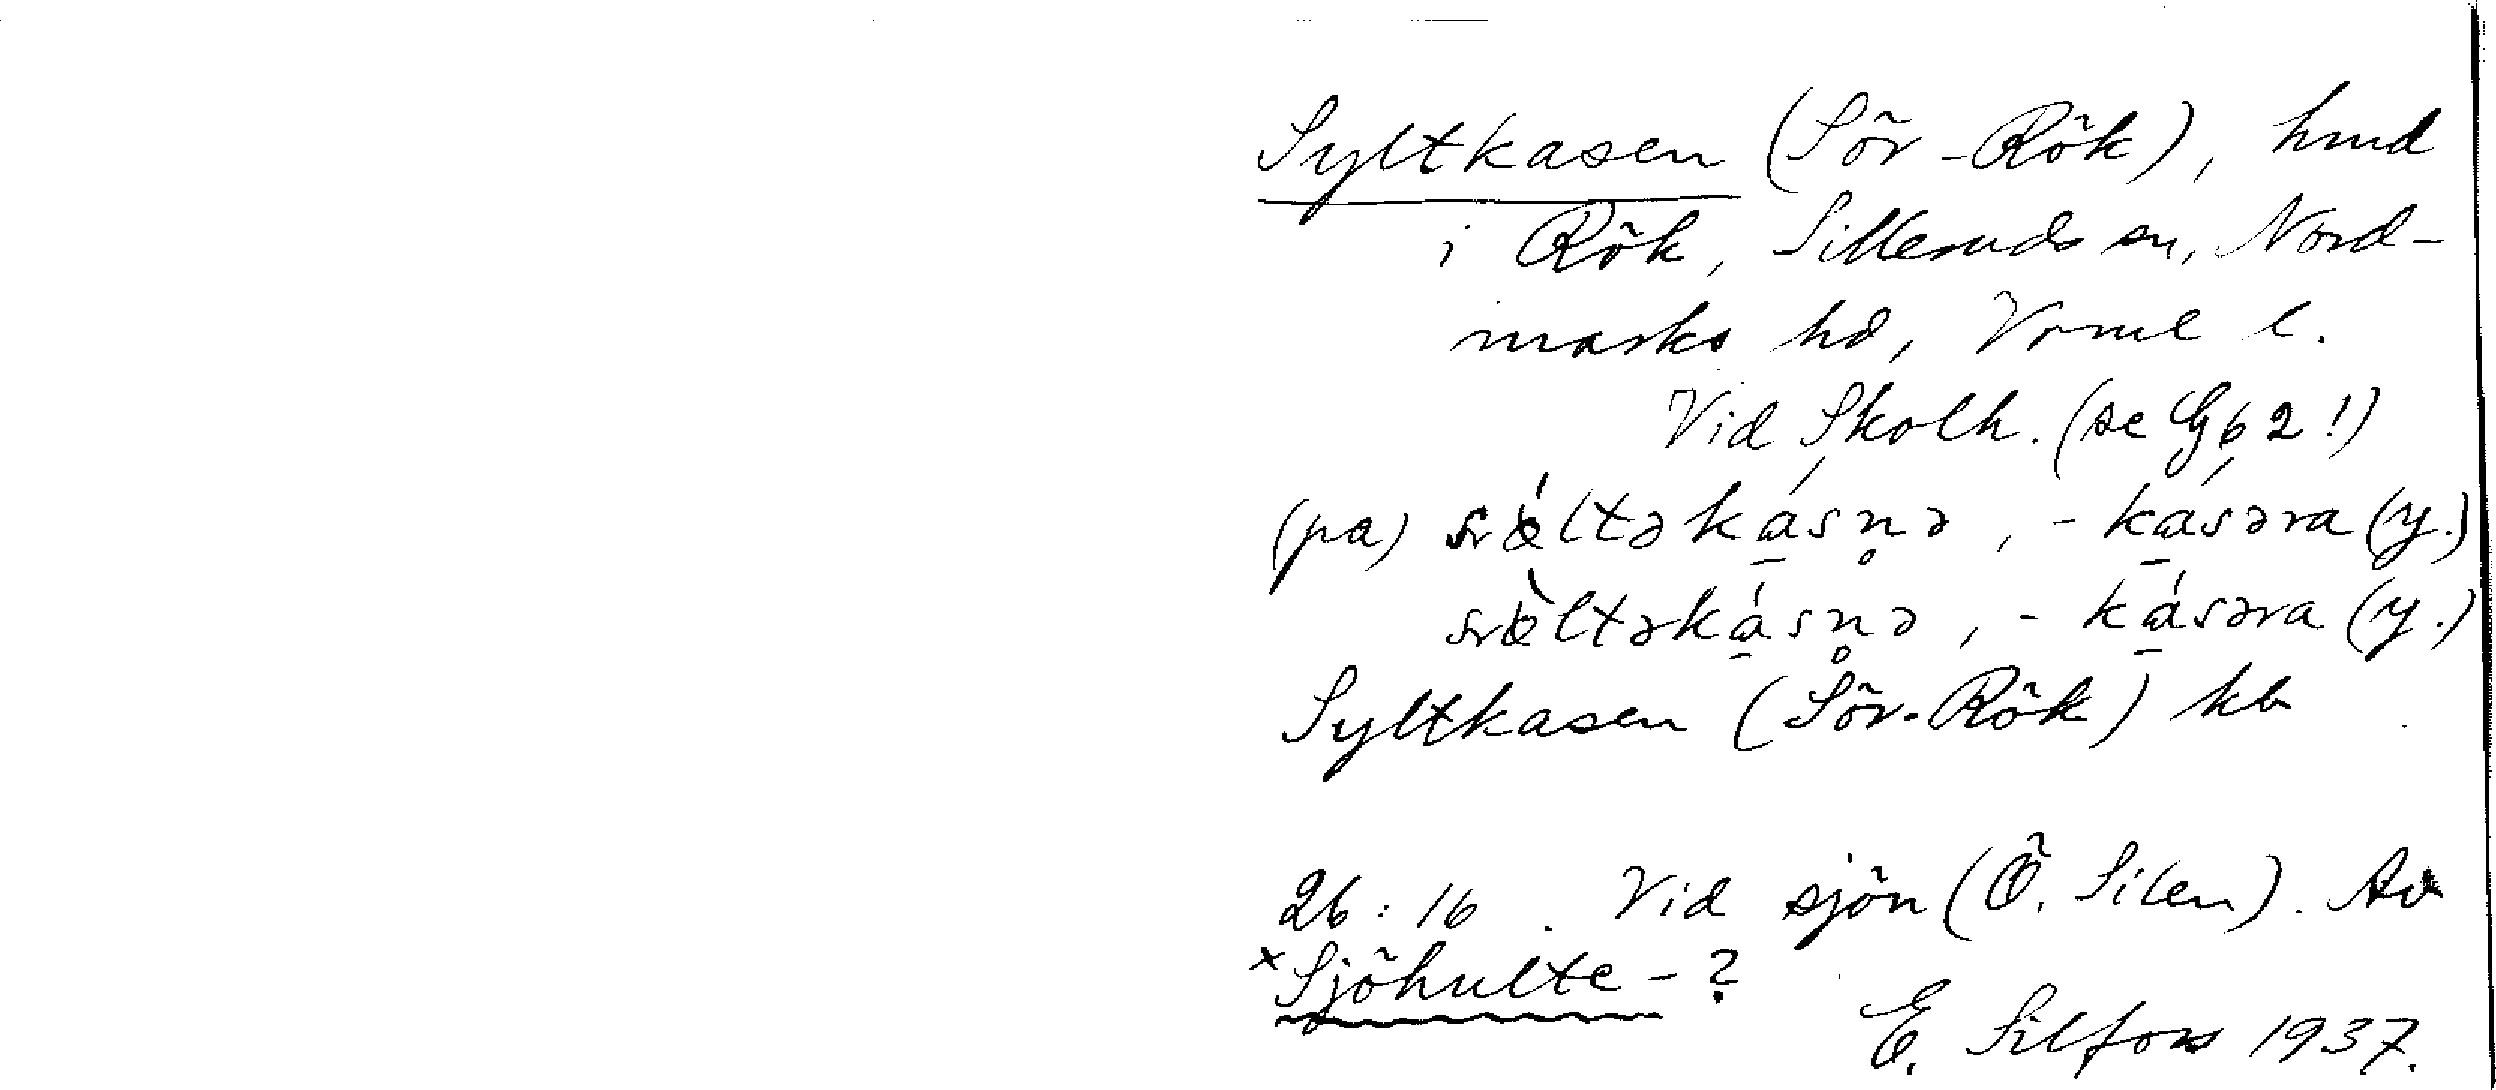 Syltkasen (Sör-Rök), hmd
i Rök, Silleruds sn, Nord-
marks hd, Vrml l.
Vid Skolh. (se G62!)
(pa) -kásəra (y.)
-kásəra (y.)
Syltkasen (Sör-Rök) kb
26:16. Vid sjön (Ö. Silen). Av
×Sjöhulte-?
E. Silfors 1937.